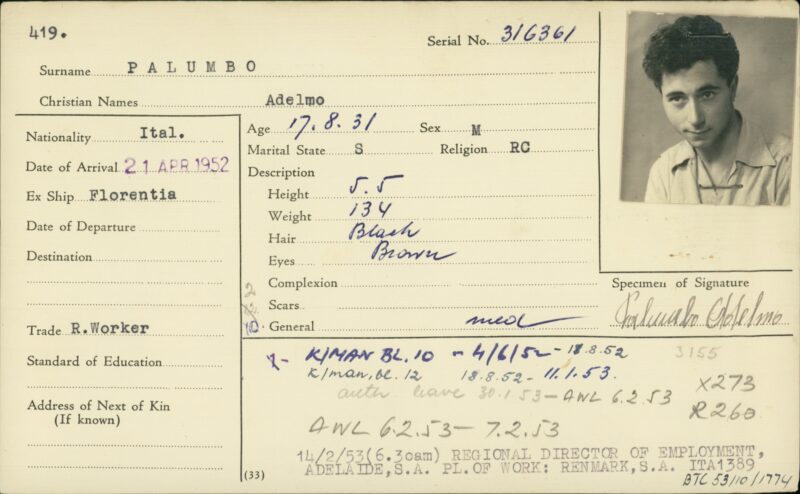 419.
Serial No. 316361
Surname PALUMBO
Christian Names Adelmo
Nationality Ital.
Date of Arrival 21 APR 1952
Ex Ship Florentia
Date of Departure
Destination
Trade R.Worker
Standard of Education
Address of Next of Kin
(If known)
Age 17.8.31 Sex M
Marital State S Religion RC
Description
Height 5.5
Weight 134
Hair Black
Eyes Brown
Complexion
Scars
General med
Specimen of Signature
Palumbo Adelmo
K/MAN BL. 10 - 4/6/52 - 18.8.52 3155
K/man, bl. 12 18.8.52 - 11.1.53. X273
auth leave 30.1.53 - AWL 6.2.53 R260
AWL 6.2.53 - 7.2.53
14/2/53(6.30am) REGIONAL DIRECTOR OF EMPLOYMENT,
ADELAIDE,S.A. PL.OF WORK: RENMARK,S.A. ITA1389
(33)
BTC 53/10/1774